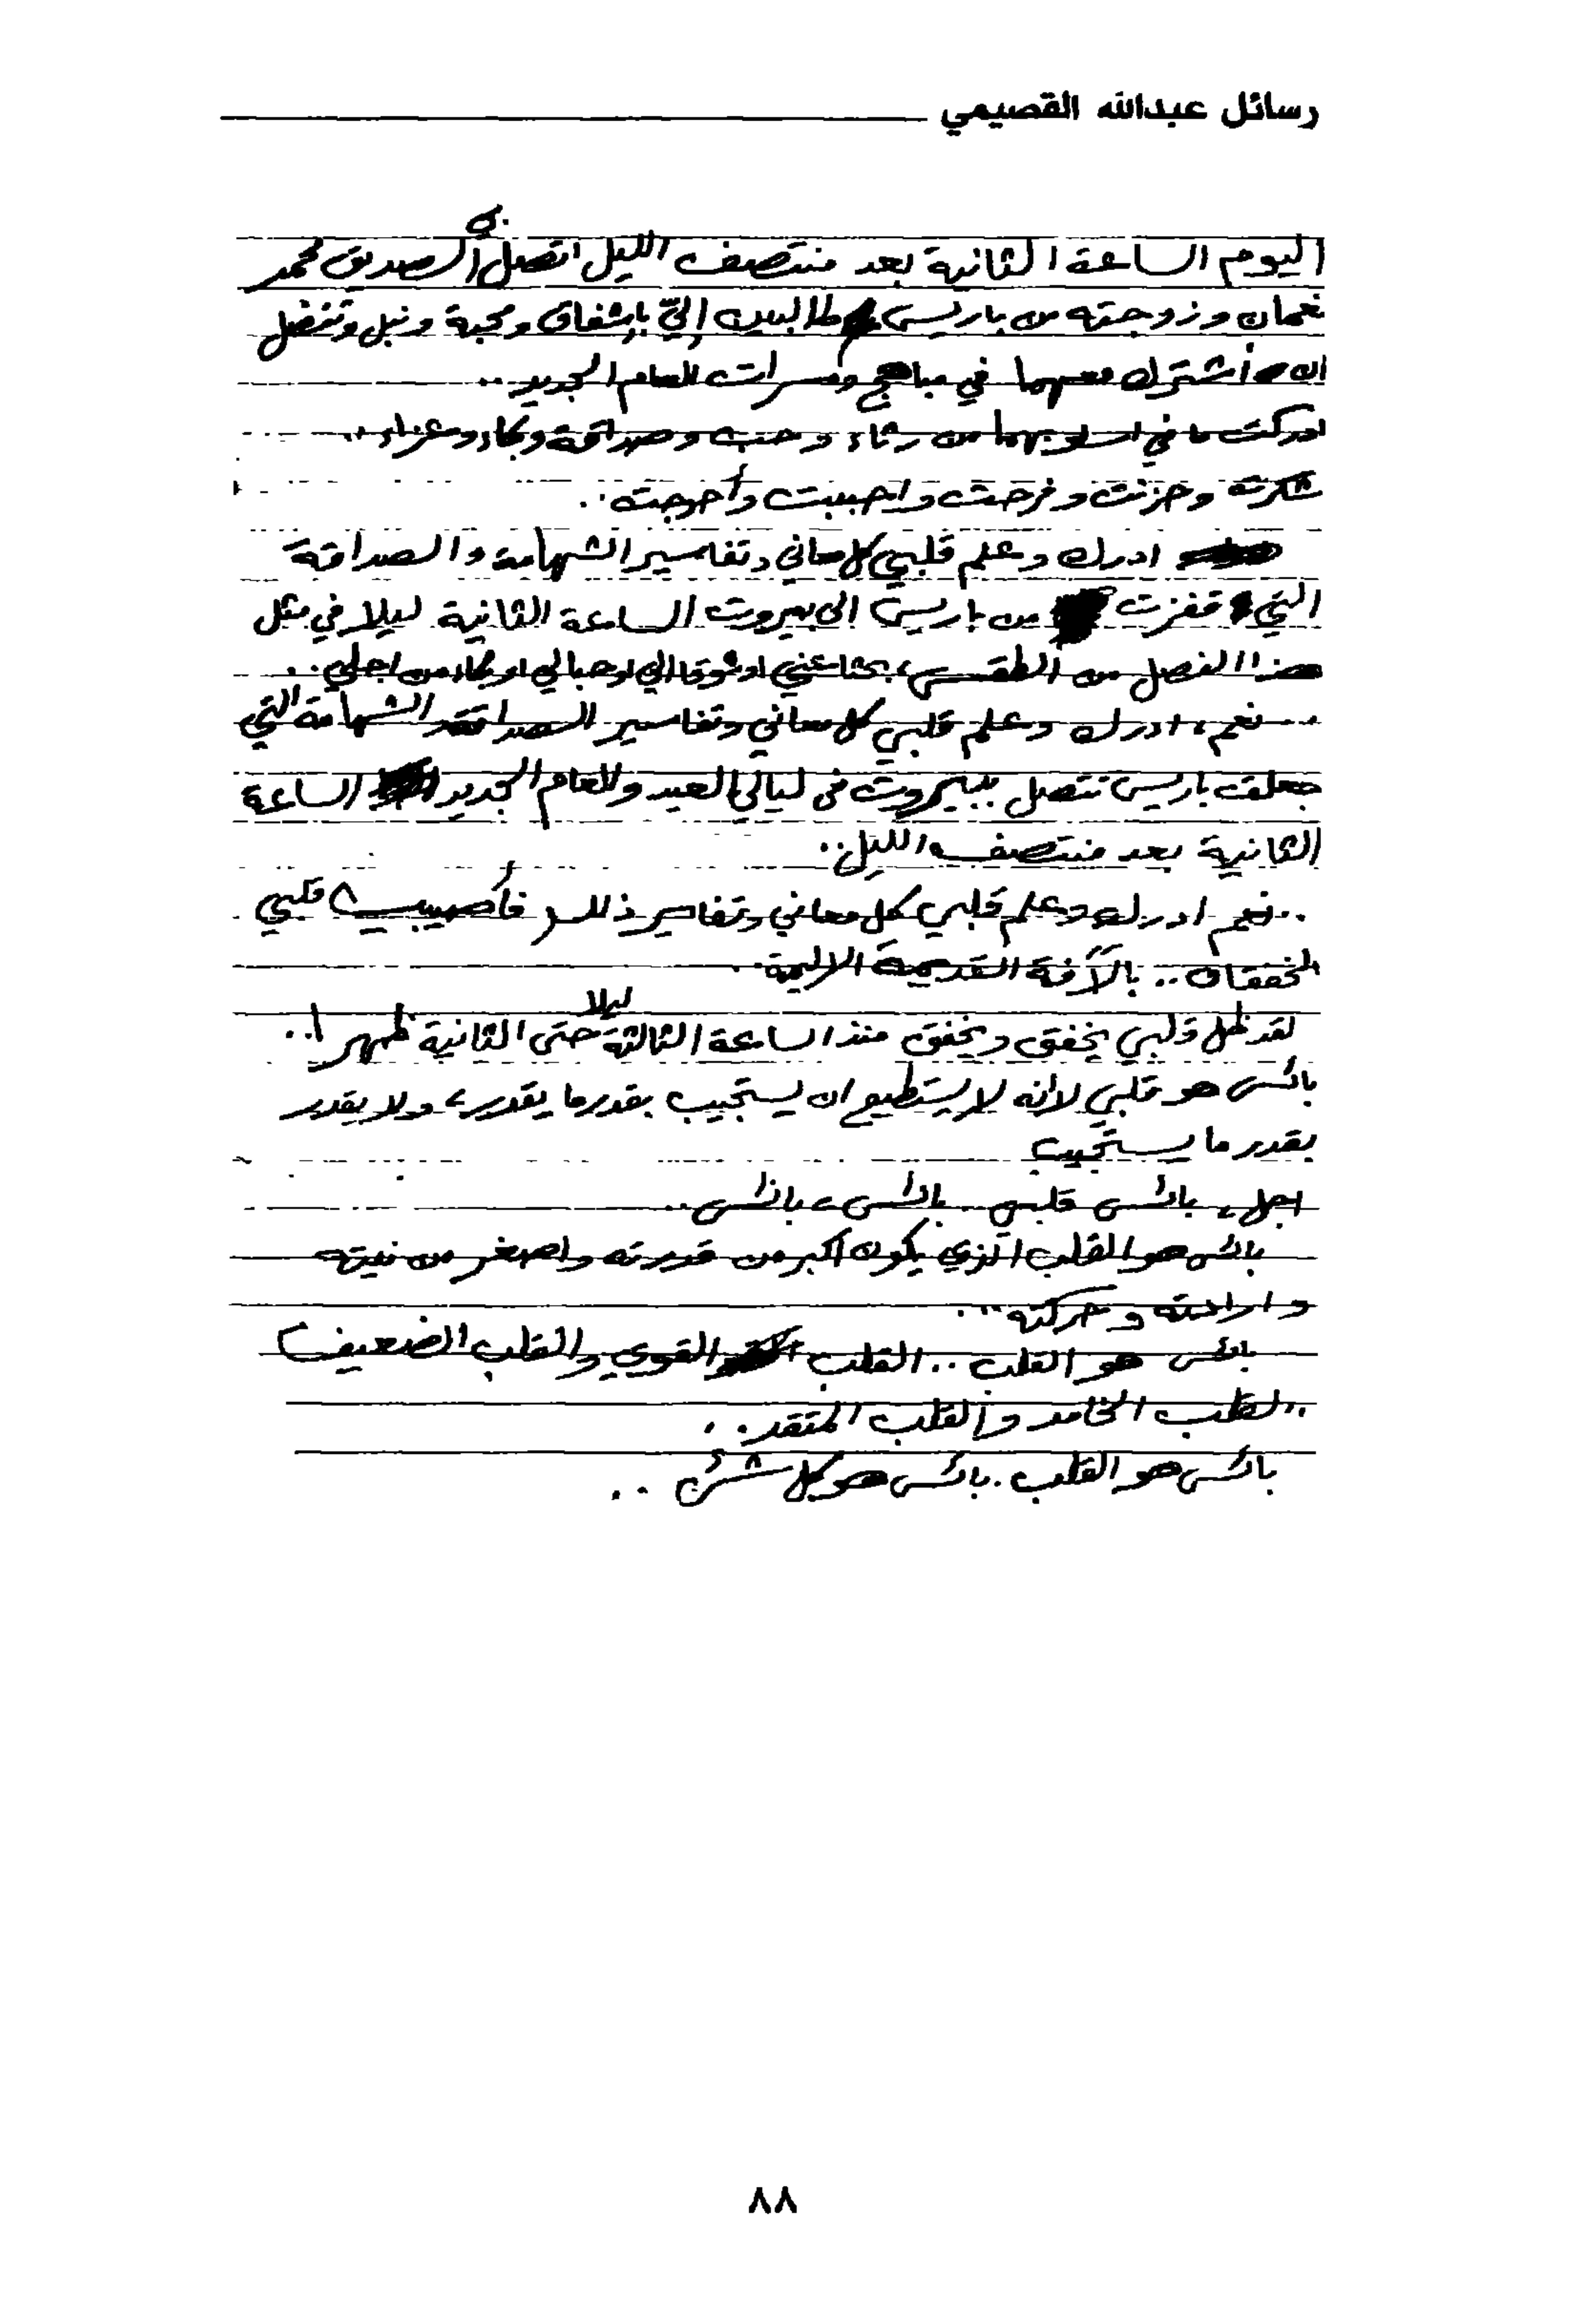 رسائل عبدالله القصيمي
اليوم الساعة الثانية بعد منتصف الليل اتصل بي الصديق محمد
نعمان وزوجته من باريس طالبين إليّ بإشفاق ومحبة ونبل وتفضل
ان أشترك معهما في مباهج ومسرات العام الجديد ..
ادركت ما في اسلوبهما من رثاء وحب وصداقة وبكاء وعزاء ..
شكرته وحزنت وفرحت واحببت وأحوجته ..
ادرك وعلم قلبي كل معاني وتفاسير الشهامة والصداقة
التي قفزت من باريس الى بيروت الساعة الثانية ليلا في مثل
هذا الفصل من الطقس، بحثا عني او شوقا الي او حبا لي او بكاء من اجلي ..
.. نعم، ادرك وعلم قلبي كل معاني وتفاسير الصداقة الشهامة التي
جعلت باريس تتصل ببيروت في ليالي العيد والعام الجديد الساعة
الثانية بعد منتصف الليل ..
.. نعم ادرك وعلم قلبي كل معاني وتفاسير ذلك فأصيب قلبي
الخفقان .. بالآفة القديمة الاليمة ..
لقد ظل قلبي يخفق ويخفق منذ الساعة الثالثة ليلا حتى الثانية ظهرا ..
بائس هو قلبي لانه لا يستطيع ان يستجيب بقدر ما يقدر، ولا يقدر
بقدر ما يستجيب
اجل، بائس قلبي .. بائس، بائس ..
بائس هو القلب الذي يكون اكبر من قدرته واصغر من نيته
وارادته وحركته ..
بائس هو القلب .. القلب القوي والقلب الضعيف
.. لقلب الخامد والقلب المتقد ..
بائس هو القلب . بائس هو كل شئ ..
٨٨